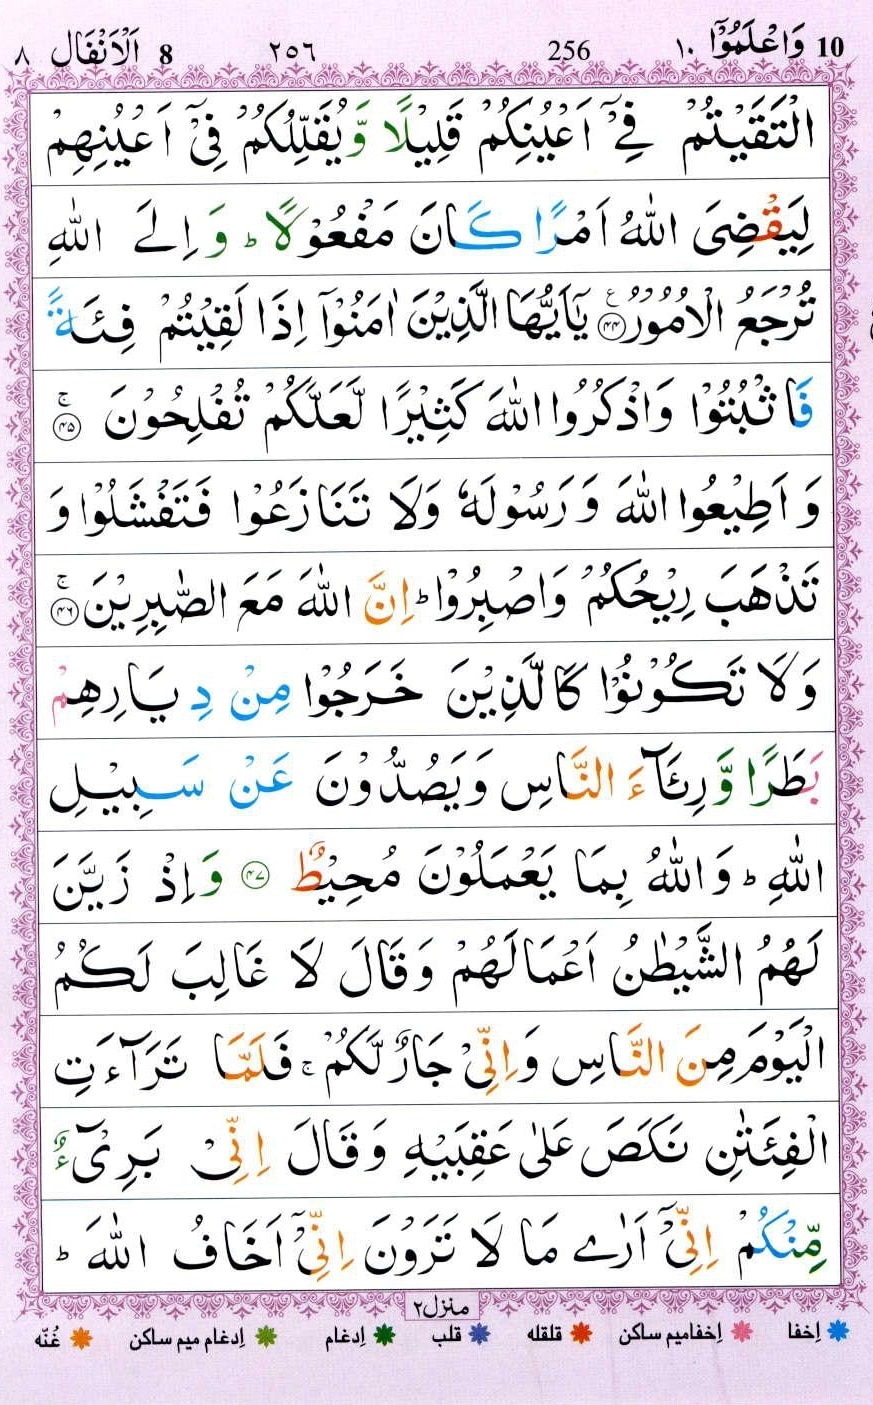 10 وَاعْلَمُوْۤا ١٠ 256 ٢٥٦ 8 اَلْاَنْفَال ٨
الْتَقَيْتُمْ فِيْۤ اَعْيُنِكُمْ قَلِيْلًا وَّيُقَلِّلُكُمْ فِيْۤ اَعْيُنِهِمْ
لِيَقْضِيَ اللّٰهُ اَمْرًا كَانَ مَفْعُوْلًا ؕ وَ اِلَي اللّٰهِ
تُرْجَعُ الْاُمُوْرُ ؑ ﴿۴۴﴾ يٰۤاَيُّهَا الَّذِيْنَ اٰمَنُوْۤا اِذَا لَقِيْتُمْ فِئَةً
فَاثْبُتُوْا وَاذْكُرُوا اللّٰهَ كَثِيْرًا لَّعَلَّكُمْ تُفْلِحُوْنَ ﴿۴۵﴾ ۚ
وَ اَطِيْعُوا اللّٰهَ وَ رَسُوْلَهٗ وَلَا تَنَازَعُوْا فَتَفْشَلُوْا وَ
تَذْهَبَ رِيْحُكُمْ وَاصْبِرُوْا ؕ اِنَّ اللّٰهَ مَعَ الصّٰبِرِيْنَ ﴿۴۶﴾ ۚ
وَلَا تَكُوْنُوْا كَالَّذِيْنَ خَرَجُوْا مِنْ دِيَارِهِمْ
بَطَرًا وَّرِئَآءَ النَّاسِ وَيَصُدُّوْنَ عَنْ سَبِيْلِ
اللّٰهِ ؕ وَاللّٰهُ بِمَا يَعْمَلُوْنَ مُحِيْطٌ ﴿۴۷﴾ وَاِذْ زَيَّنَ
لَهُمُ الشَّيْطٰنُ اَعْمَالَهُمْ وَقَالَ لَا غَالِبَ لَكُمُ
الْيَوْمَ مِنَ النَّاسِ وَاِنِّيْ جَارٌ لَّكُمْ ۚ فَلَمَّا تَرَآءَتِ
الْفِئَتٰنِ نَكَصَ عَلٰي عَقِبَيْهِ وَقَالَ اِنِّيْ بَرِيْٓءٌ
مِّنْكُمْ اِنِّيْۤ اَرٰي مَا لَا تَرَوْنَ اِنِّيْۤ اَخَافُ اللّٰهَ ؕ
منزل۲
اِخفا اِخفامیم ساکن قلقله قلب اِدغام اِدغام میم ساکن غُنّه